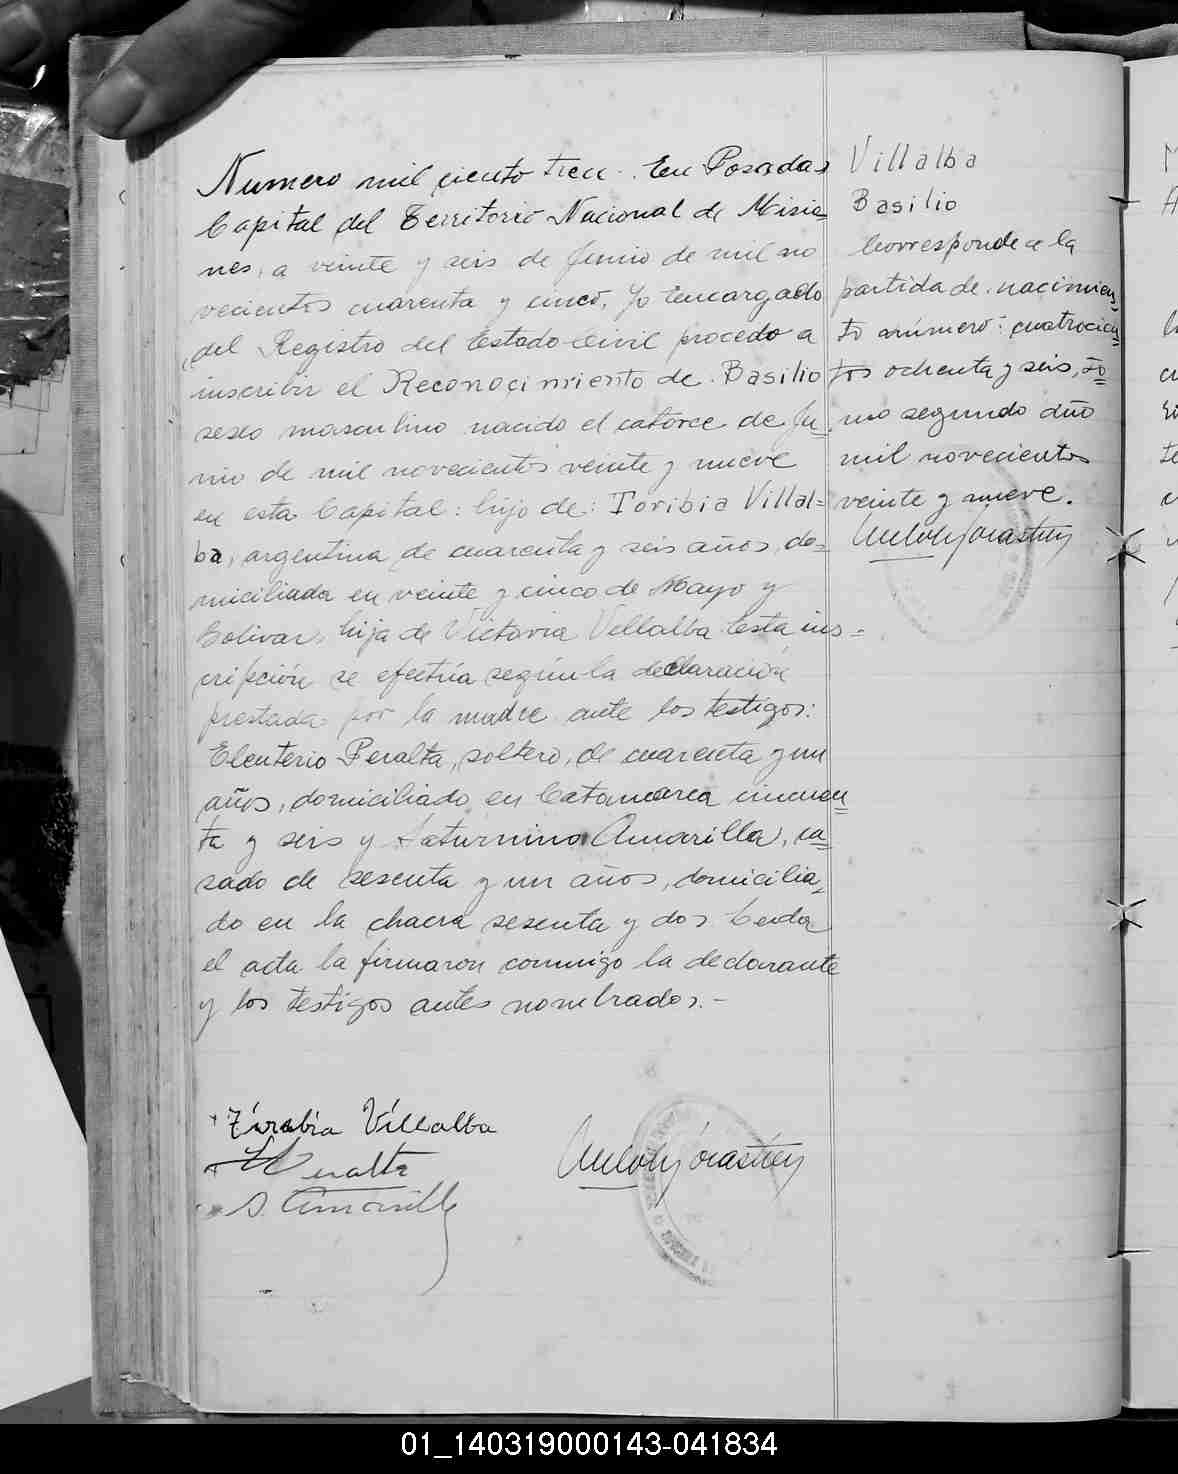 Numero mil ciento trece. En Posadas
Capital del Territorio Nacional de Misio=
nes, a veinte y seis de Junio de mil no
vecientos cuarenta y cinco, Yo Encargado
del Registro del Estado Civil procedo a
inscribir el Reconocimiento de Basilio
sexo masculino nacido el catorce de Ju=
nio de mil novecientos veinte y nueve
en esta Capital: hijo de: Toribia Villal=
ba, argentina de cuarenta y seis años, do=
miciliada en veinte y cinco de Mayo y
Bolivar, hija de Victoria Villalba. Esta ins=
cripción se efectúa según la declaración
prestada por la madre ante los testigos:
Eleuterio Peralta, soltero, de cuarenta y un
años, domiciliado en Catamarca cincuen=
ta y seis y Saturnino Amarilla, ca=
sado de sesenta y un años, domicilia=
do en la chacra sesenta y dos. Leida
el acta la firmaron conmigo la declarante
y los testigos antes nombrados.-
Villalba
Basilio
Corresponde a la
partida de nacimien=
to número: cuatrocien=
tos ochenta y seis, to=
mo segundo año
mil novecientos
veinte y nueve.
Toribia Villalba
Peralta
S. Amarilla
01_140319000143-041834